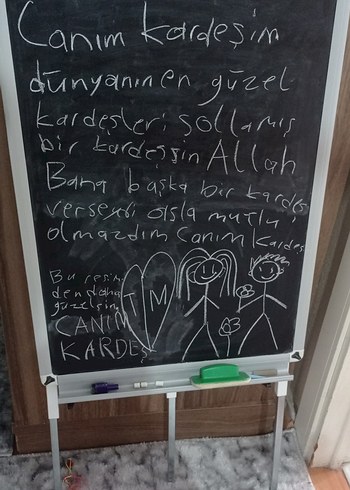 Canım kardeşim
dünyanın en güzel
kardeşleri sollamış
bir kardeşsin Allah
Bana başka bir kardeş
verseydi asla mutlu
olmazdım Canım kardeş
Bu resim
den daha
güzelsin
CANIM
KARDEŞ
M